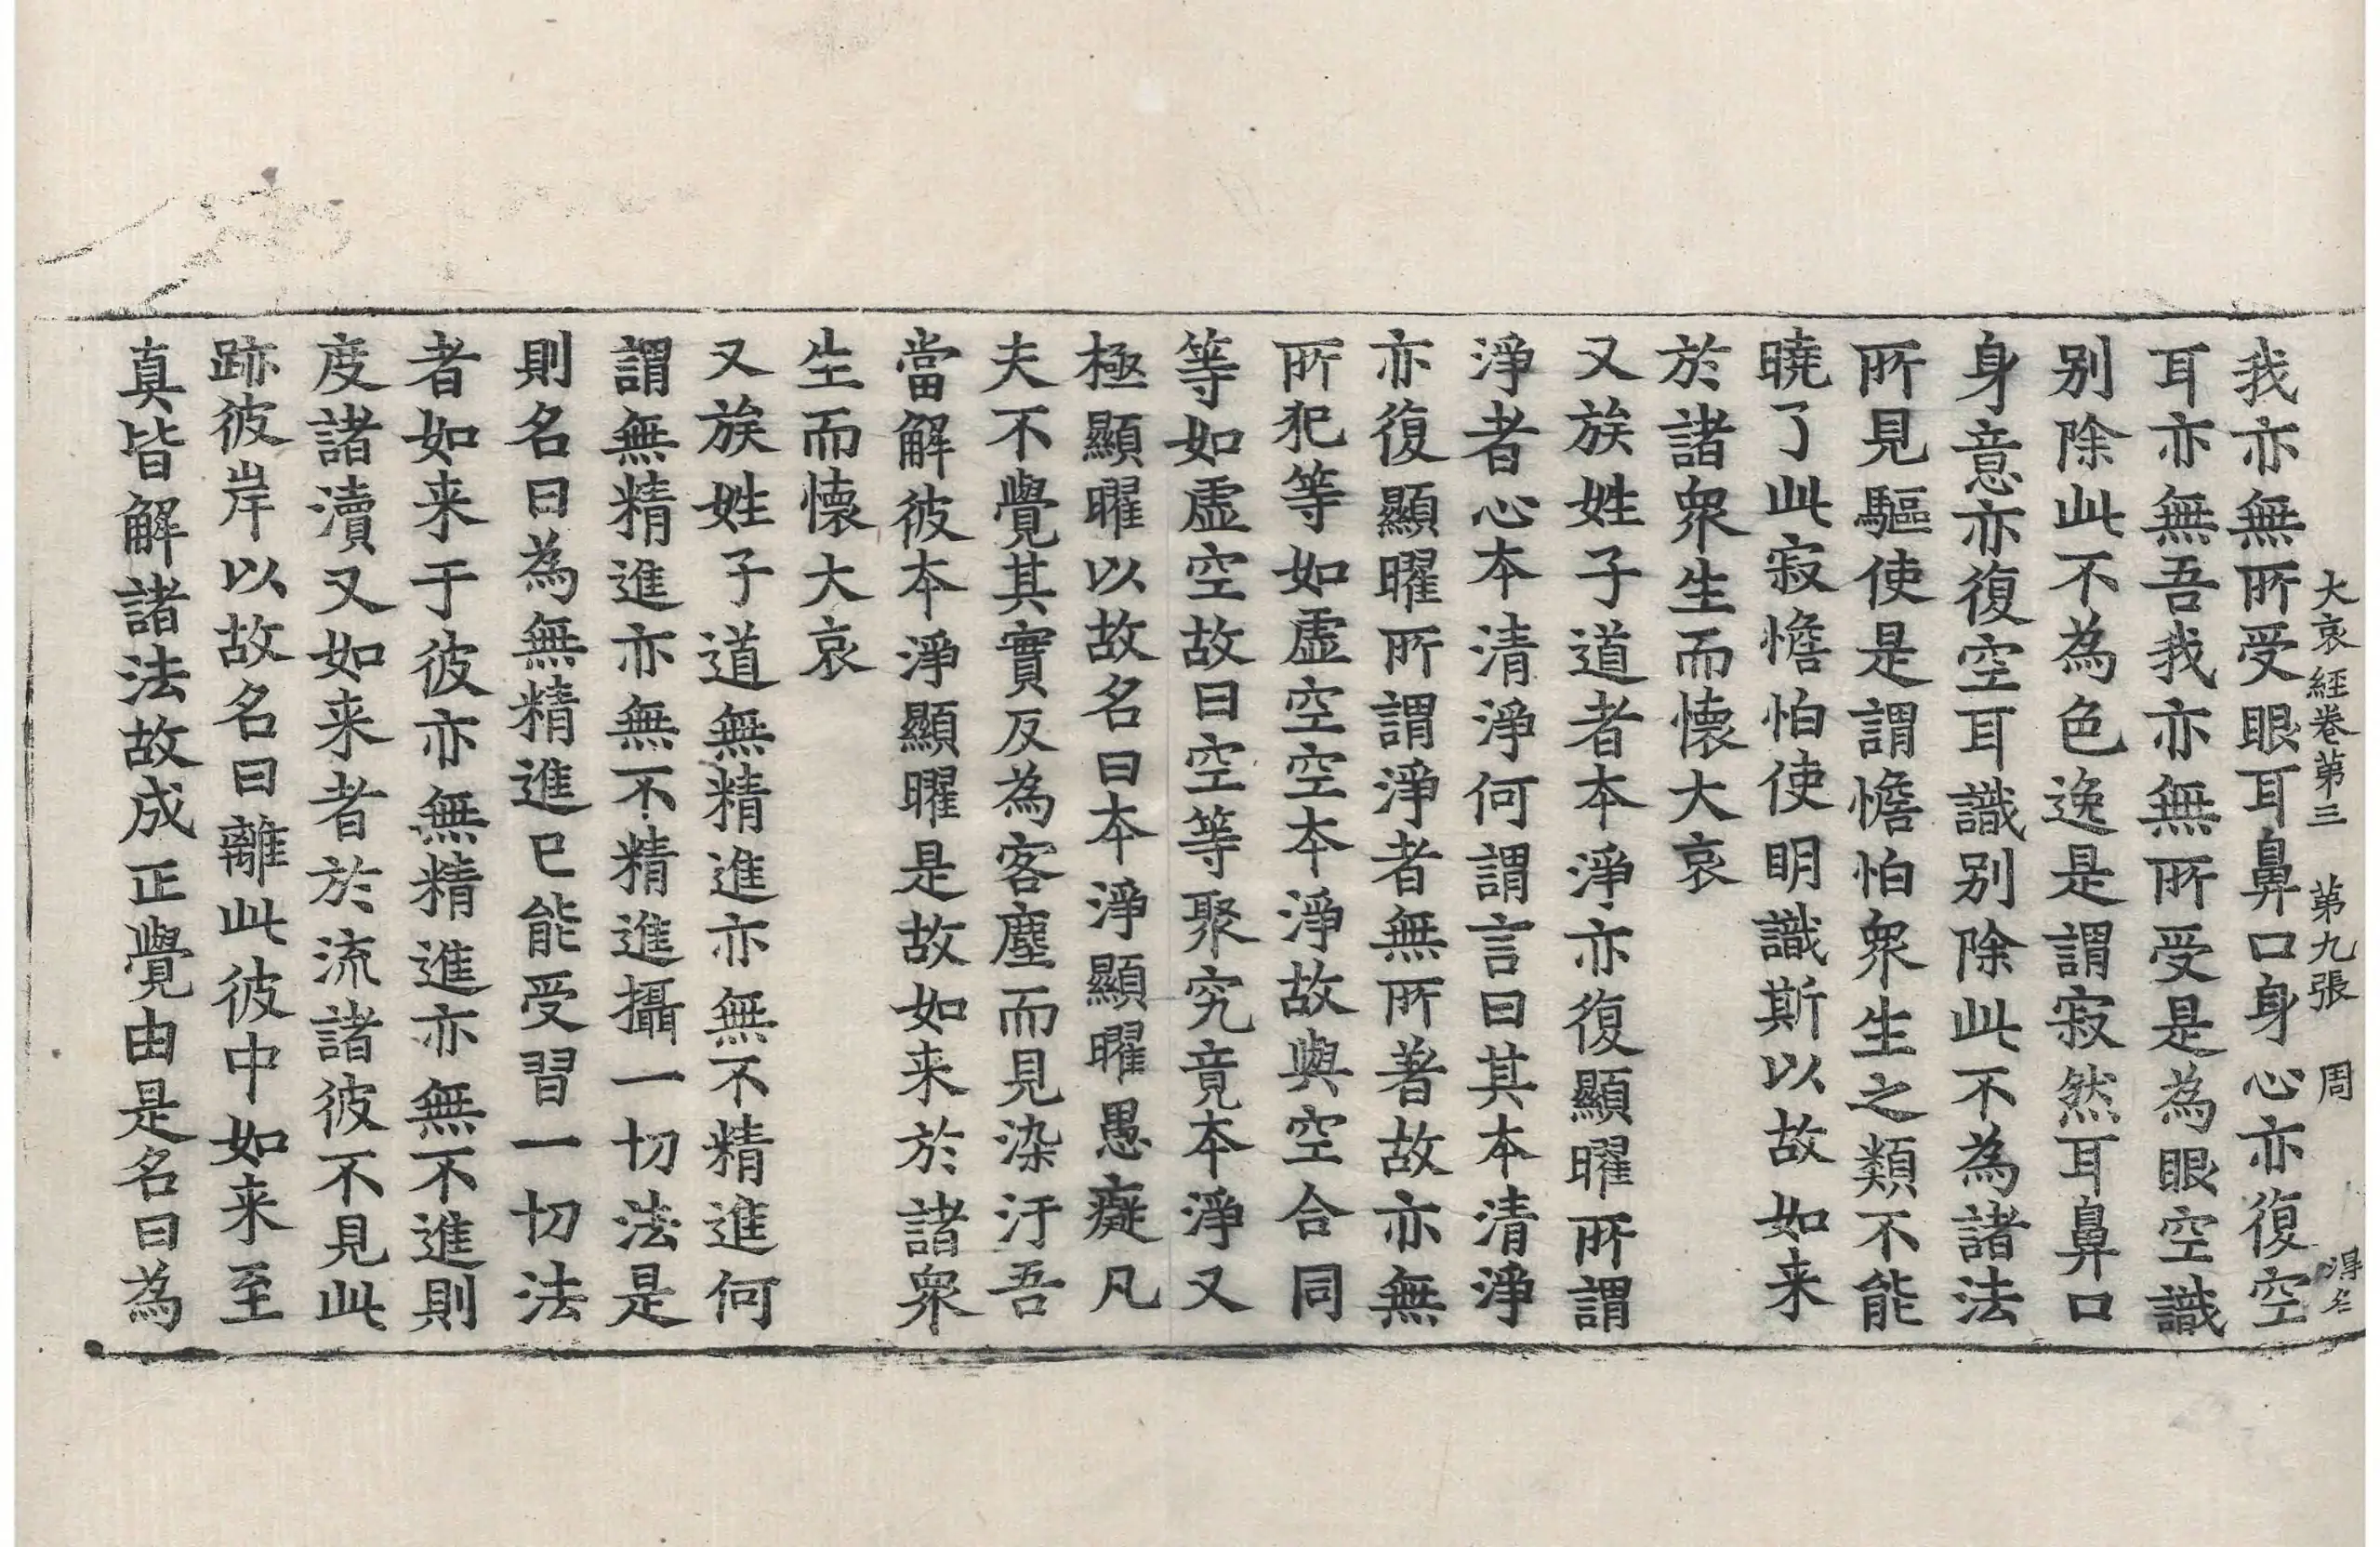 大哀經卷第三　第九張　周　得名
我亦無所受眼耳鼻口身心亦復空
耳亦無吾我亦無所受是為眼空識
别除此不為色逸是謂寂然耳鼻口
身意亦復空耳識别除此不為諸法
所見驅使是謂憺怕衆生之類不能
曉了此寂憺怕使明識斯以故如来
於諸衆生而懷大哀
又族姓子道者本淨亦復顯曜所謂
淨者心本清淨何謂言曰其本清淨
亦復顯曜所謂淨者無所著故亦無
所犯等如虛空空本淨故與空合同
等如虛空故曰空等聚究竟本淨又
極顯曜以故名曰本淨顯曜愚癡凡
夫不覺其實反為客塵而見染汙吾
當解彼本淨顯曜是故如来於諸衆
生而懷大哀
又族姓子道無精進亦無不精進何
謂無精進亦無不精進攝一切法是
則名曰為無精進已能受習一切法
者如来于彼亦無精進亦無不進則
度諸瀆又如来者於流諸彼不見此
跡彼岸以故名曰離此彼中如来至
真皆解諸法故成正覺由是名曰為